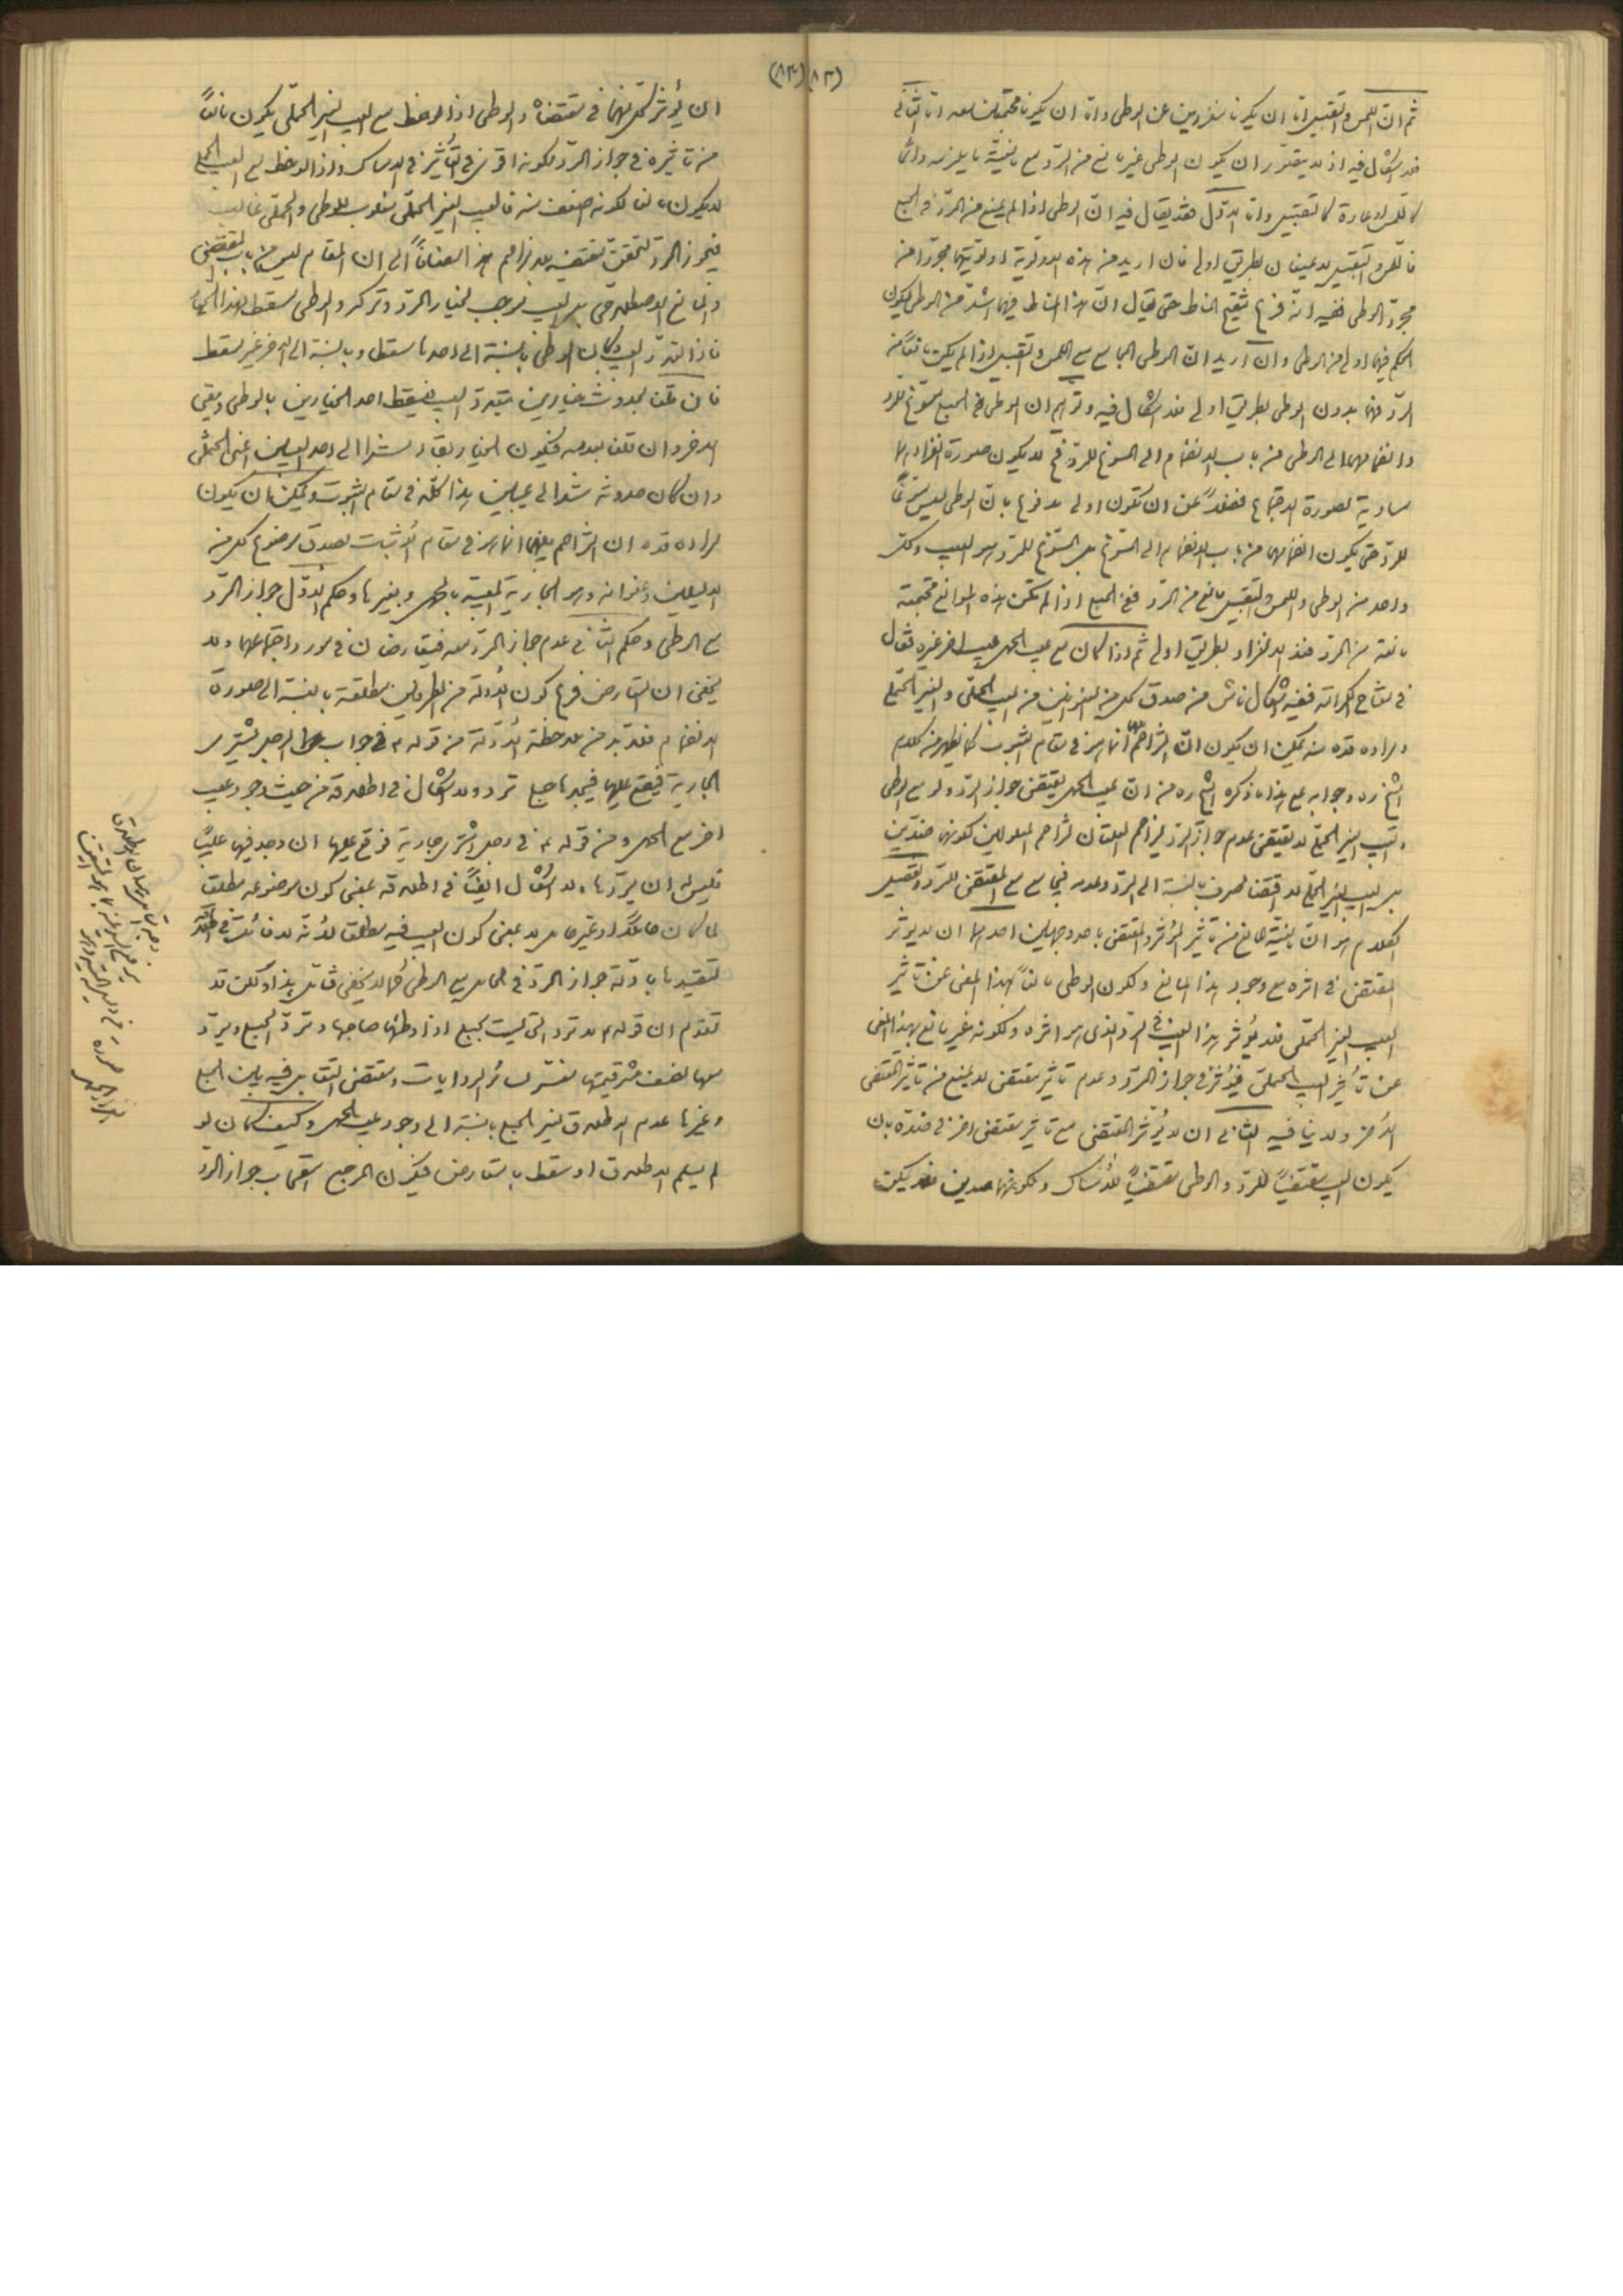 (٨٣)
ثم ان اللمس والتقبيل اما ان يكونا منفردين عن الوطى واما ان يكونا مجتمعين معه اما الثانى
فلا اشكال فيه اذ لا يتصور ان يكون الوطى غير مانع من الرد مع مانعية ما يلازمه دائما
كاللمس او عادة كالتقبيل واما الاول فقد يقال فيه ان الوطى اذا لم يمنع من الرد فى الجميع
فاللمس والتقبيل لا يمنعان بطريق اولى فان اريد من هذه الاولوية اولويتهما مجردا من
مجرد الوطى ففيه انه فرع تنقيح المناط حتى يقال ان هذا المناط فيهما اشد من الوطى ليكون
الحكم فيهما اولى من الوطى وان اريد ان الوطى الجامع مع اللمس والتقبيل اذا لم يكن مانعا من
الرد فهما بدون الوطى بطريق اولى فلا اشكال فيه وتوهم ان الوطى فى الجميع مسوغ للرد
وانضمامهما الى الوطى من باب الانضمام الى المسوغ للرد فح لا يكون صورة انفرادهما
مساوية لصورة الاجتماع فضلا عن ان تكون اولى مدفوع بان الوطى ليس مسوغا
للرد حتى يكون انضمامهما من باب الانضمام الى المسوغ بل المسوغ للرد هو العيب وكل
واحد من الوطى واللمس والتقبيل مانع من الرد ففى الجميع اذا لم تكن هذه الموانع مجتمعة
مانعة من الرد فعند الانفراد بطريق اولى ثم اذا كان مع عيب الحمل عيب اخر غيره فقال
فى مفتاح الكرامة ففيه اشكال ناش من صدق كل من العنوانين من العيب الحملى والغير الحملى
ومراده قده منه يمكن ان يكون ان التزاحم انما هو فى مقام الثبوت كما يظهر من كلام
الشيخ ره وجوابه مع هذا ما ذكره الشيخ ره من ان عيب الحمل يقتضى جواز الرد ولو مع الوطى
والعيب الغير الحملى لا يقتضى عدم جواز الرد ليزاحم العلتان تزاحم المعلولين لكونهما ضدين
بل العيب الغير الحملى لا اقتضاء صرف بالنسبة الى الرد وعدمه فيجامع مع المقتضى للرد وتفصيل
الكلام هو ان مانعية المانع من تاثير المؤثر والمقتضى باحد وجهين احدهما ان لا يؤثر
المقتضى فى اثره مع وجود هذا المانع ولكون الوطى مانعا بهذا المعنى عن تاثير
العيب الغير الحملى فلا يؤثر هذا العيب فى الرد الذى هو اثره ولكونه غير مانع بهذا المعنى
عن تأثير العيب الحملى فيؤثر فى جواز الرد وعدم تاثير مقتضى لا يمنع من تاثير المقتضى
الآخر ولا ينافيه الثانى ان لا يؤثر المقتضى مع تاثير مقتضى اخر فى ضده بان
يكون العيب مقتضيا للرد والوطى مقتضيا للامساك ولكونهما ضدين فلا يمكن
(٨٤)
ان يؤثر كل منهما فى مقتضاه والوطى اذا لوحظ مع العيب الغير الحملى يكون مانعا
من تاثيره فى جواز الرد لكونه اقوى فى التأثير فى الامساك واذا لوحظ مع العيب الحملى
لا يكون مانعا لكونه اضعف منه فالعيب الغير الحملى مغلوب للوطى والحملى غالب
فيجوز الرد لتحقق مقتضيه بلا مزاحم هذا مضافا الى ان المقام ليس من باب المقتضى
والمانع الاصطلاحى بل العيب موجب لخيار الرد وتركه والوطى مسقط لهذا الخيار
فاذا تعدد العيب وكان الوطى بالنسبة الى احدهما مسقط وبالنسبة الى الاخر غير مسقط
فان قلنا بحدوث خيارين بتعدد العيب فيسقط احد الخيارين بالوطى ويبقى
الاخر وان قلنا بعدمه فيكون الخيار بقاء مستندا الى احد العيبين اعنى الحملى
وان كان حدوثه مستندا الى عيبين هذا كله فى مقام الثبوت ويمكن ان يكون
مراده قده ان التزاحم بينهما انما هو فى مقام الاثبات لصدق موضوع كل من
الدليلين وعنوانه وهو الجارية المعيبة بالحمل وبغيرها وحكم الاول جواز الرد
مع الوطى وحكم الثانى عدم جواز الرد معه فيتعارضان فى مورد اجتماعهما ولا
يخفى ان التعارض فرع كون الادلة من الطرفين مطلقة بالنسبة الى صورة
الانضمام فلا بد من ملاحظة الادلة من قوله ع فى جواب الرجل يشترى
الجارية فيقع عليها فيجدها حبلى ترد ولا اشكال فى اطلاقه من حيث وجود عيب
اخر مع الحمل ومن قوله ع فى رجل اشترى جارية فوقع عليها ان وجد فيها عيبا
فليس له ان يردها ولا اشكال ايضا فى اطلاقه بمعنى كون موضوعه مطلقا
لما كان حاملا او غير حامل لا بمعنى كون العيب فيه مطلقا لانه لا فائدة فى
لتقييدها بادلة جواز الرد فى الحامل مع الوطى كما لا يخفى فتامل هذا ولكن قد
تقدم ان قوله ع لا ترد التى ليست بحبلى اذا وطئها صاحبها وترد الحبلى ويرد
معها نصف عشر قيمتها مفسر لسائر الروايات ومقتضى التقابل فيه بين الحبلى
وغيرها عدم الاطلاق لغير الحبلى بالنسبة الى وجود عيب الحمل وكيف كان لو
لم يسلم الاطلاق او سقط بالتعارض فيكون المرجع استصحاب جواز الرد